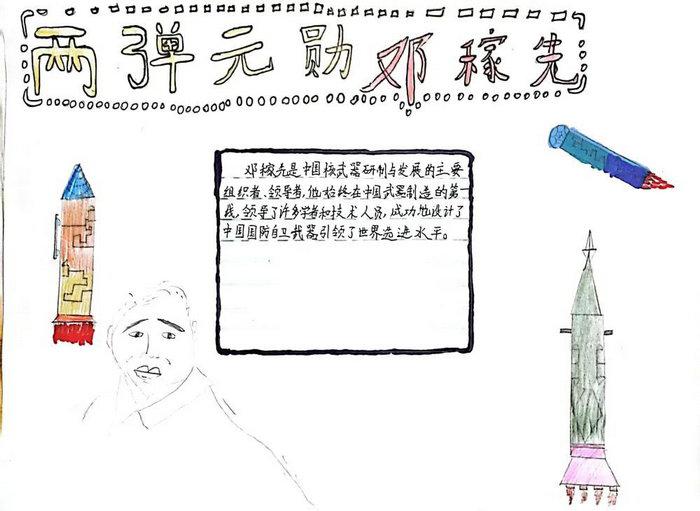 两弹元勋邓稼先
邓稼先是中国核武器研制与发展的主要
组织者、领导者,他始终在中国武器制造的第一
线,领导了许多学者和技术人员,成功地设计了
中国国防自卫武器引领了世界先进水平。